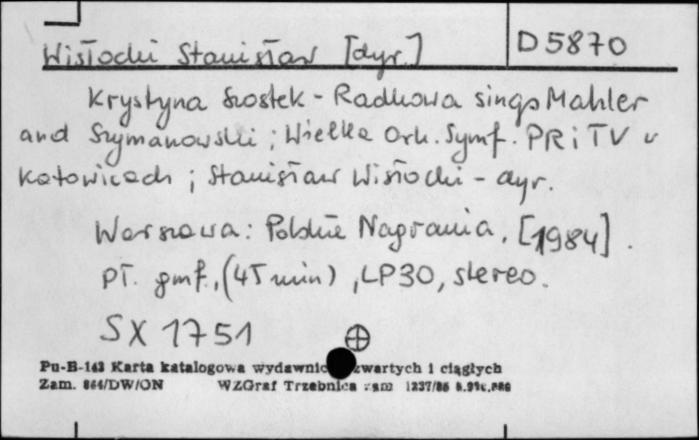 Wisłocki Stanisław [dyr.] D 5870
Krystyna Szostek-Radkowa sings Mahler
and Szymanowski ; Wielka Ork. Symf. PR i TV w
Katowicach ; Stanisław Wisłocki - dyr.
Warszawa : Polskie Nagrania, [1984].
pł. gmf., (45 min), LP30, stereo.
SX 1751
Pu-B-143 Karta katalogowa wydawnic zwartych i ciągłych
Zam. 864/DW/ON WZGraf Trzebnica zam 1237/86